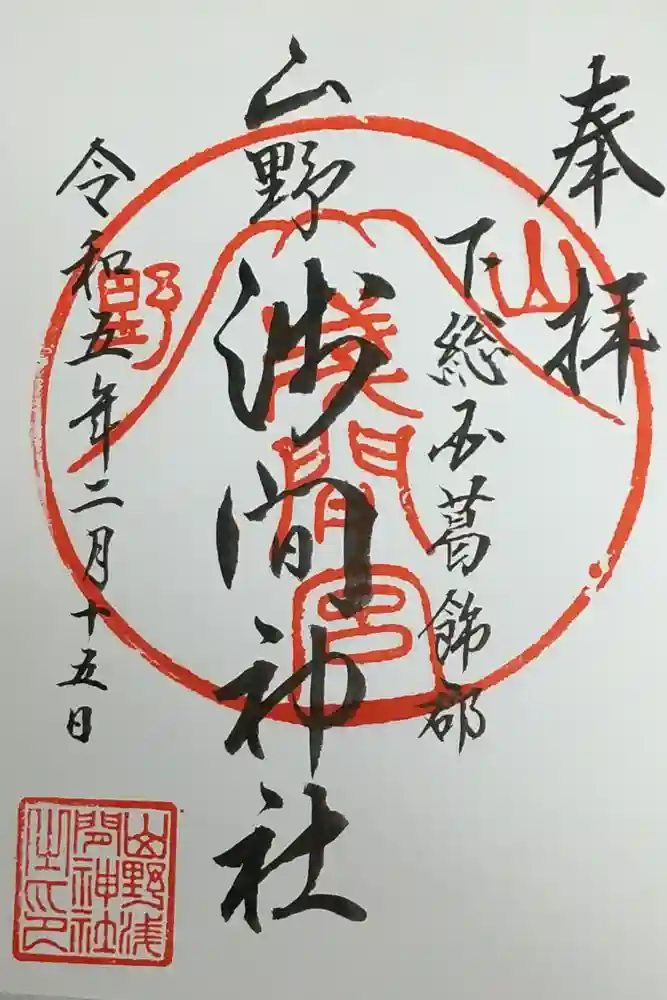 奉拝
下総国葛飾郡
山野
浅間神社
令和五年二月十五日
山野
浅間宮
山野浅
間神社
之印